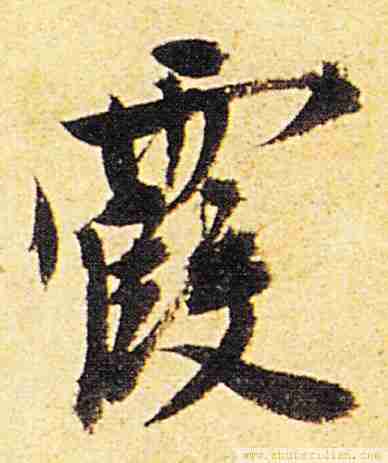 霞
www.shufazidian.com